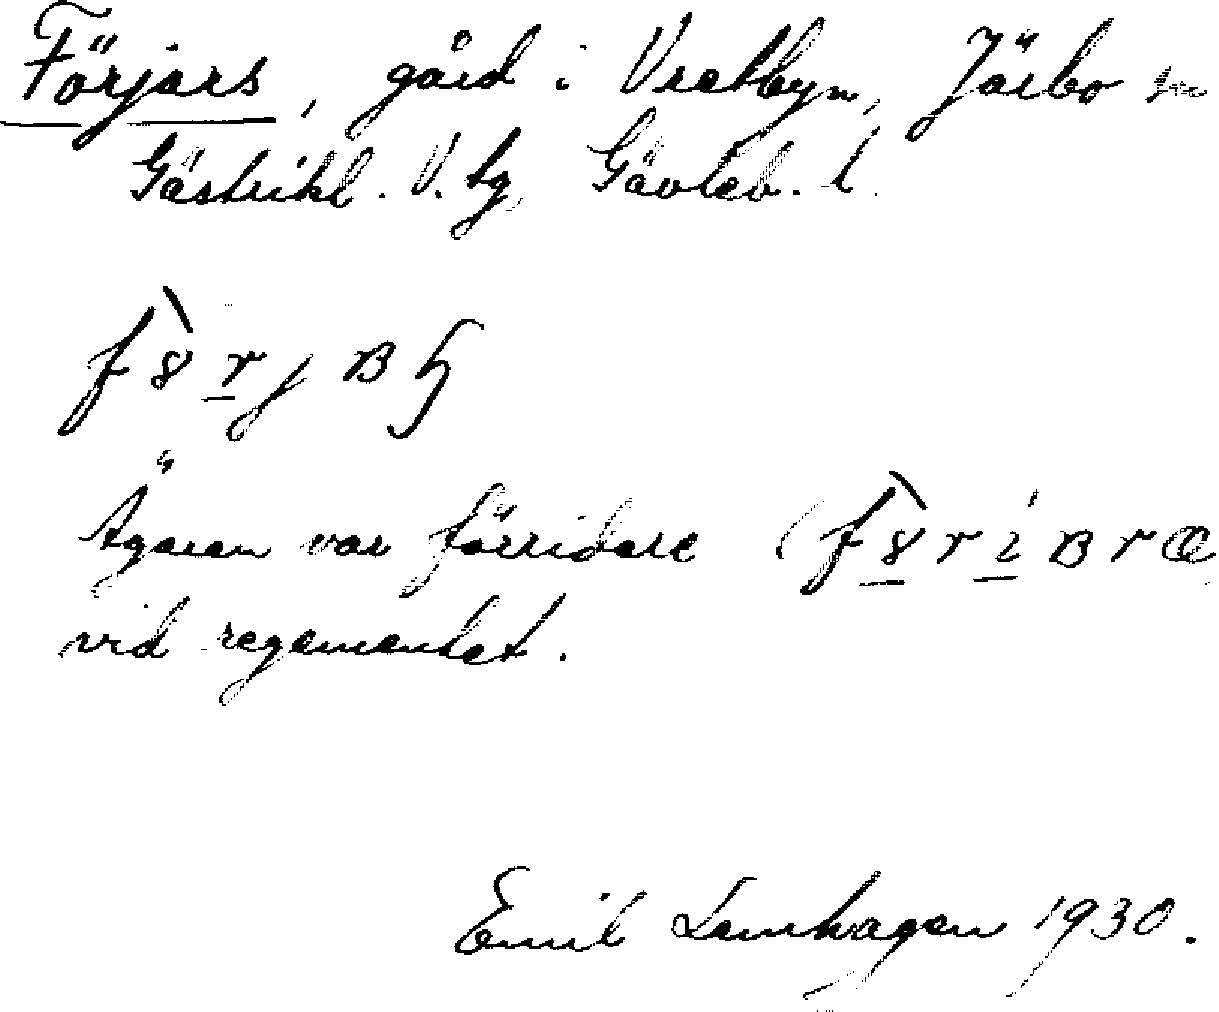 Förjars, gård i Vretbyn, Järbo sn
Gästrikl. V. tg, Gävleb. l.
Ägaren var förridare
vid regementet.
Emil Lernhagen 1930.